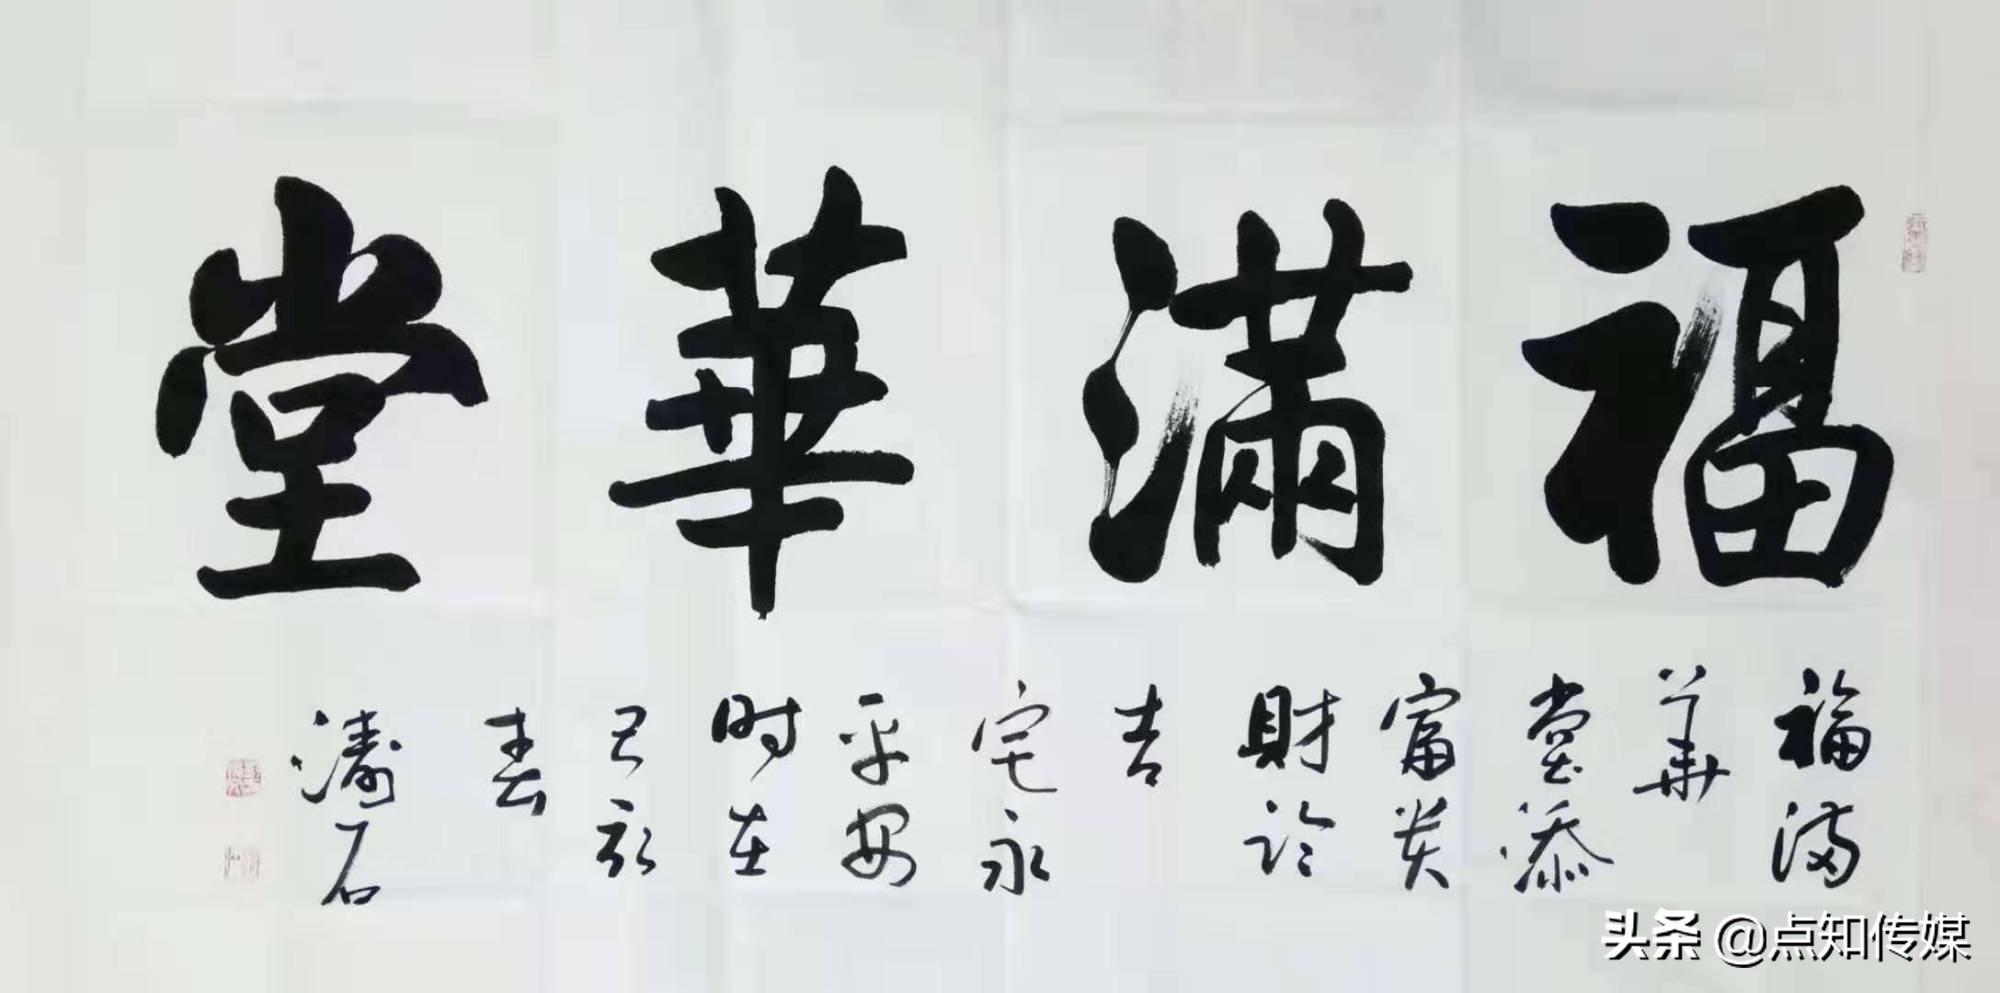 福滿華堂
福满
華
堂添
富贵
財
吉
宅永
平安
时在
己亥
春
濤石
头条 @点知传媒